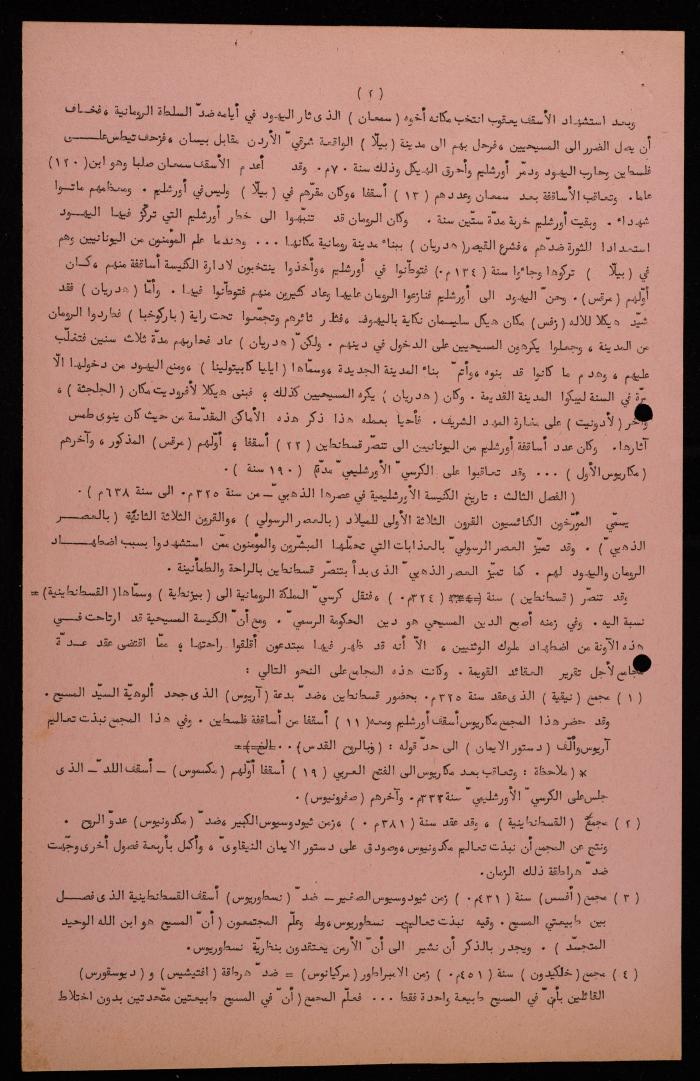 ( ٢ )
وبعد استشهاد الأسقف يعقوب انتخب مكانه أخوه ( سمعان ) الذى ثار اليهود في أيامه ضدّ السلطة الرومانية ، فخاف
أن يصل الضرر الى المسيحيين ، فرحل بهم الى مدينة ( بيلّا ) الواقعة شرقيّ الأردن مقابل بيسان ، فزحف تيطس علـــى
فلسطين وحارب اليهود ودمّر أورشليم وأحرق الهيكل وذلك سنة ٧٠م. وقد أعدم الأسقف سمعان صلبا وهو ابن ( ١٢٠ )
عاما. وتعاقب الأساقفة بعد سمعان وعددهم ( ١٣ ) أسقفا ، وكان مقرّهم في ( بيلّا ) وليس في أورشليم . ومعظمهم ماتـوا
شهداء . وبقيت أورشليم خربة مدّة ستّين سنة . وكان الرومان قد تنبّهوا الى خطر أورشليم التي تركّز فيهـا اليهـــود
استعدادا للثورة ضدّهم ، فشرع القيصر ( هدريان ) ببناء مدينة رومانية مكانها ... وعندما علم المؤمنون من اليونانيين وهم
في ( بيلّا ) تركوها وجاءوا سنة ( ١٣٤م. ) فتوطّنوا في أورشليم ، وأخذوا ينتخبون لادارة الكنيسة أساقفة منهم ، كــان
أوّلهم ( مرقس ) . وحنّ اليهود الى أورشليم فنازعوا الرومان عليها وعاد كثيرين منهم فتوطّنوا فيها . وأمّا ( هدريان ) فقد
شيّد هيكلا للاله ( زفس ) مكان هيكل سليمان نكاية باليهود ، فثار ثائرهم وتجمّعوا تحت راية ( باركوخبا ) فطردوا الرومان
من المدينة ، وجعلوا يكرهون المسيحيين على الدخول في دينهم . ولكنّ ( هدريان ) عاد فحاربهم مدّة ثلاث سنين فتغلّب
عليهم ، وهدم ما كانوا قد بنوه ، وأتمّ بناء المدينة الجديدة ، وسمّاها ( ايليا كابيتولينا ) ، ومنع اليهود من دخولها الّا
مرّة في السنة ليبكوا المدينة القديمة . وكان ( هدريان ) يكره المسيحيين كذلك ، فبنى هيكلا لأفروديت مكان ( الجلجثة ) ،
وآخر ( لأدونيت ) على مغارة المهد الشريف . فأحيا بعمله هذا ذكر هذه الأماكن المقدّسة من حيث كان ينوى طمس
آثارها. وكان عدد أساقفة أورشليم من اليونانيين الى تنصّر قسطنطين ( ٢٢ ) أسقفا ، أوّلهم ( مرقس ) المذكور ، وآخرهم
( مكاريوس الأول ) ... وقد تعاقبوا على الكرسيّ الأورشليميّ مدّة ( ١٩٠ سنة ) .
( الفصل الثالث : تاريخ الكنيسة الأورشليمية في عصرها الذهبيّ – من سنة ٣٢٥م. الى سنة ٦٣٨م ) .
يسمّي المؤرّخون الكنائسيون القرون الثلاثة الأولى للميلاد ( بالعصر الرسولي ) ، والقرون الثلاثة الثانية ( بالعصـــر
الذهبيّ ) . وقد تميّز العصر الرسوليّ بالعذابات التي تحمّلها المبشّرين والمؤمنون ممّن استشهدوا بسبب اضطهـــاد
الرومان واليهود لهم . كما تميّز العصر الذهبيّ الذى بدأ بتنصّر قسطنطين بالراحة والطمأنينة .
وقد تنصّر ( قسطنطين ) سنة ( ٣٢٤م. ) ، فنقل كرسيّ المملكة الرومانية الى ( بيزنطية ) وسمّاها ( القسطنطينية ) =
نسبة اليه . وفي زمنه أصبح الدين المسيحي هو دين الحكومة الرسميّ . ومع أنّ الكنيسة المسيحية قد ارتاحت فـــي
هذه الآونة من اضطهاد ملوك الوثنيين ، الّا أنه قد ظهر فيها مبتدعون أقلقوا راحتها ، ممّا اقتضى عقد عــدّة
مجامع لأجل تقرير العقائد القويمة . وكانت هذه المجامع على النحو التالي :
( ١ ) مجمع ( نيقية ) الذى عقد سنة ٣٢٥م. بحضور قسطنطين ، ضدّ بدعة ( آريوس ) الذى جحد ألوهيّة السيّد المسيح .
وقد حضر هذا المجمع مكاريوس أسقف أورشليم ومعه ( ١١ ) أسقفا من أساقفة فلسطين . وفي هذا المجمع نبذت تعاليم
آريوس وألّف ( دستور الايمان ) الى حدّ قوله : ( وبالروح القدس ) ..
* ( ملاحظة : وتعاقب بعد مكاريوس الى الفتح العربي ( ١٩ ) أسقفا أوّلهم ( مكسموس ) – أسقف اللدّ – الذى
جلس على الكرسيّ الأورشليميّ سنة ٣٣٣م. وآخرهم ( صفرونيوس ) .
( ٢ ) مجمع ( القسطنطينية ) ، وقد عقد سنة ( ٣٨١م. ) ، زمن ثيودوسيوس الكبير ، ضدّ ( مكدونيوس ) عدوّ الروح .
ونتج عن المجمع أن نبذت تعاليم مكدونيوس ، وصودق على دستور الايمان النيقاوىّ ، وأكمل بأربعة فصول أخرى وجّهت
ضدّ هراطقة ذلك الزمان.
( ٣ ) مجمع ( أفسس ) سنة ( ٤٣١م. ) زمن ثيودوسيوس الصغير – ضدّ ( نسطوريوس ) أسقف القسطنطينية الذى فصـــل
بين طبيعتي المسيح . وفيه نبذت تعاليم نسطوريوس ، وعلّم المجتمعون ( أنّ المسيح هو ابن الله الوحيد
المتجسّد ) . ويجدر بالذكر أن نشير الى أنّ الأرمن يعتقدون بنظريّة نسطوريوس.
( ٤ ) مجمع ( خلكيدون ) سنة ( ٤٥١م. ) زمن الامبراطور ( مركيانوس ) = ضدّ هرطقة ( افتيشيس ) و ( ديوسقورس )
القائلين بأنّ في المسيح طبيعة واحدة فقط ... فعلّم المجمع ( أنّ في المسيح طبيعتين متّحدتين بدون اختلاط